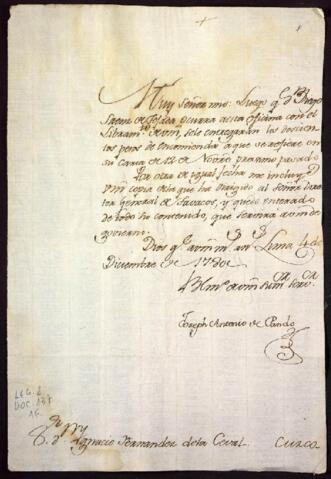 Muy Señor mio: Luego q. Dn. Diego
Saenz de Tejada, ocurra a esta oficina con el
Libram.to de vm, se le entregarán los doscien
tos pesos de encomienda a que se refiere en
su Carta de 12 de Novre. proximo pasado
La otra de igual fecha me incluye
vm copia de la que ha dirigido al Señor Direc
tor General de Tavacos, y quedo enterado
de todo su contenido, que servira a vm de
govierno.
Dios gue. a vm m. an. Lima 4 de
Diciembre de 1780
B. l. m. de vm su m.
Joseph Antonio de Pando
LEG. 2
DOC. 137
Sr. Dn. Ignacio Fernandez de la Ceval. Cuzco